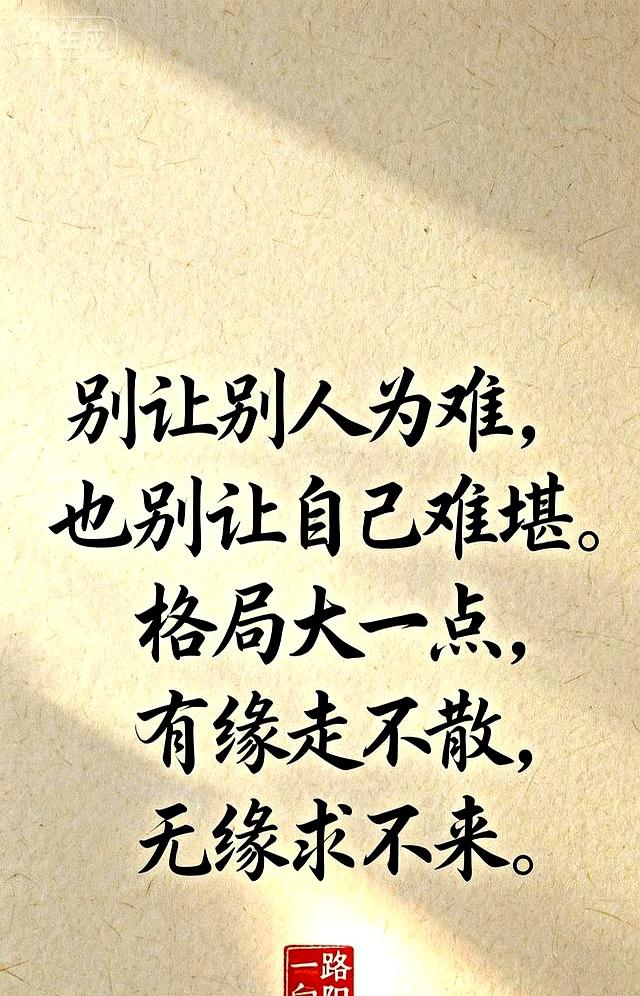 别让别人为难，
也别让自己难堪。
格局大一点，
有缘走不散，
无缘求不来。
一路